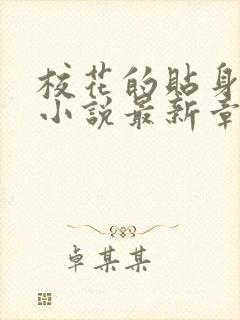 校花的貼身
小說最新章
卓某某